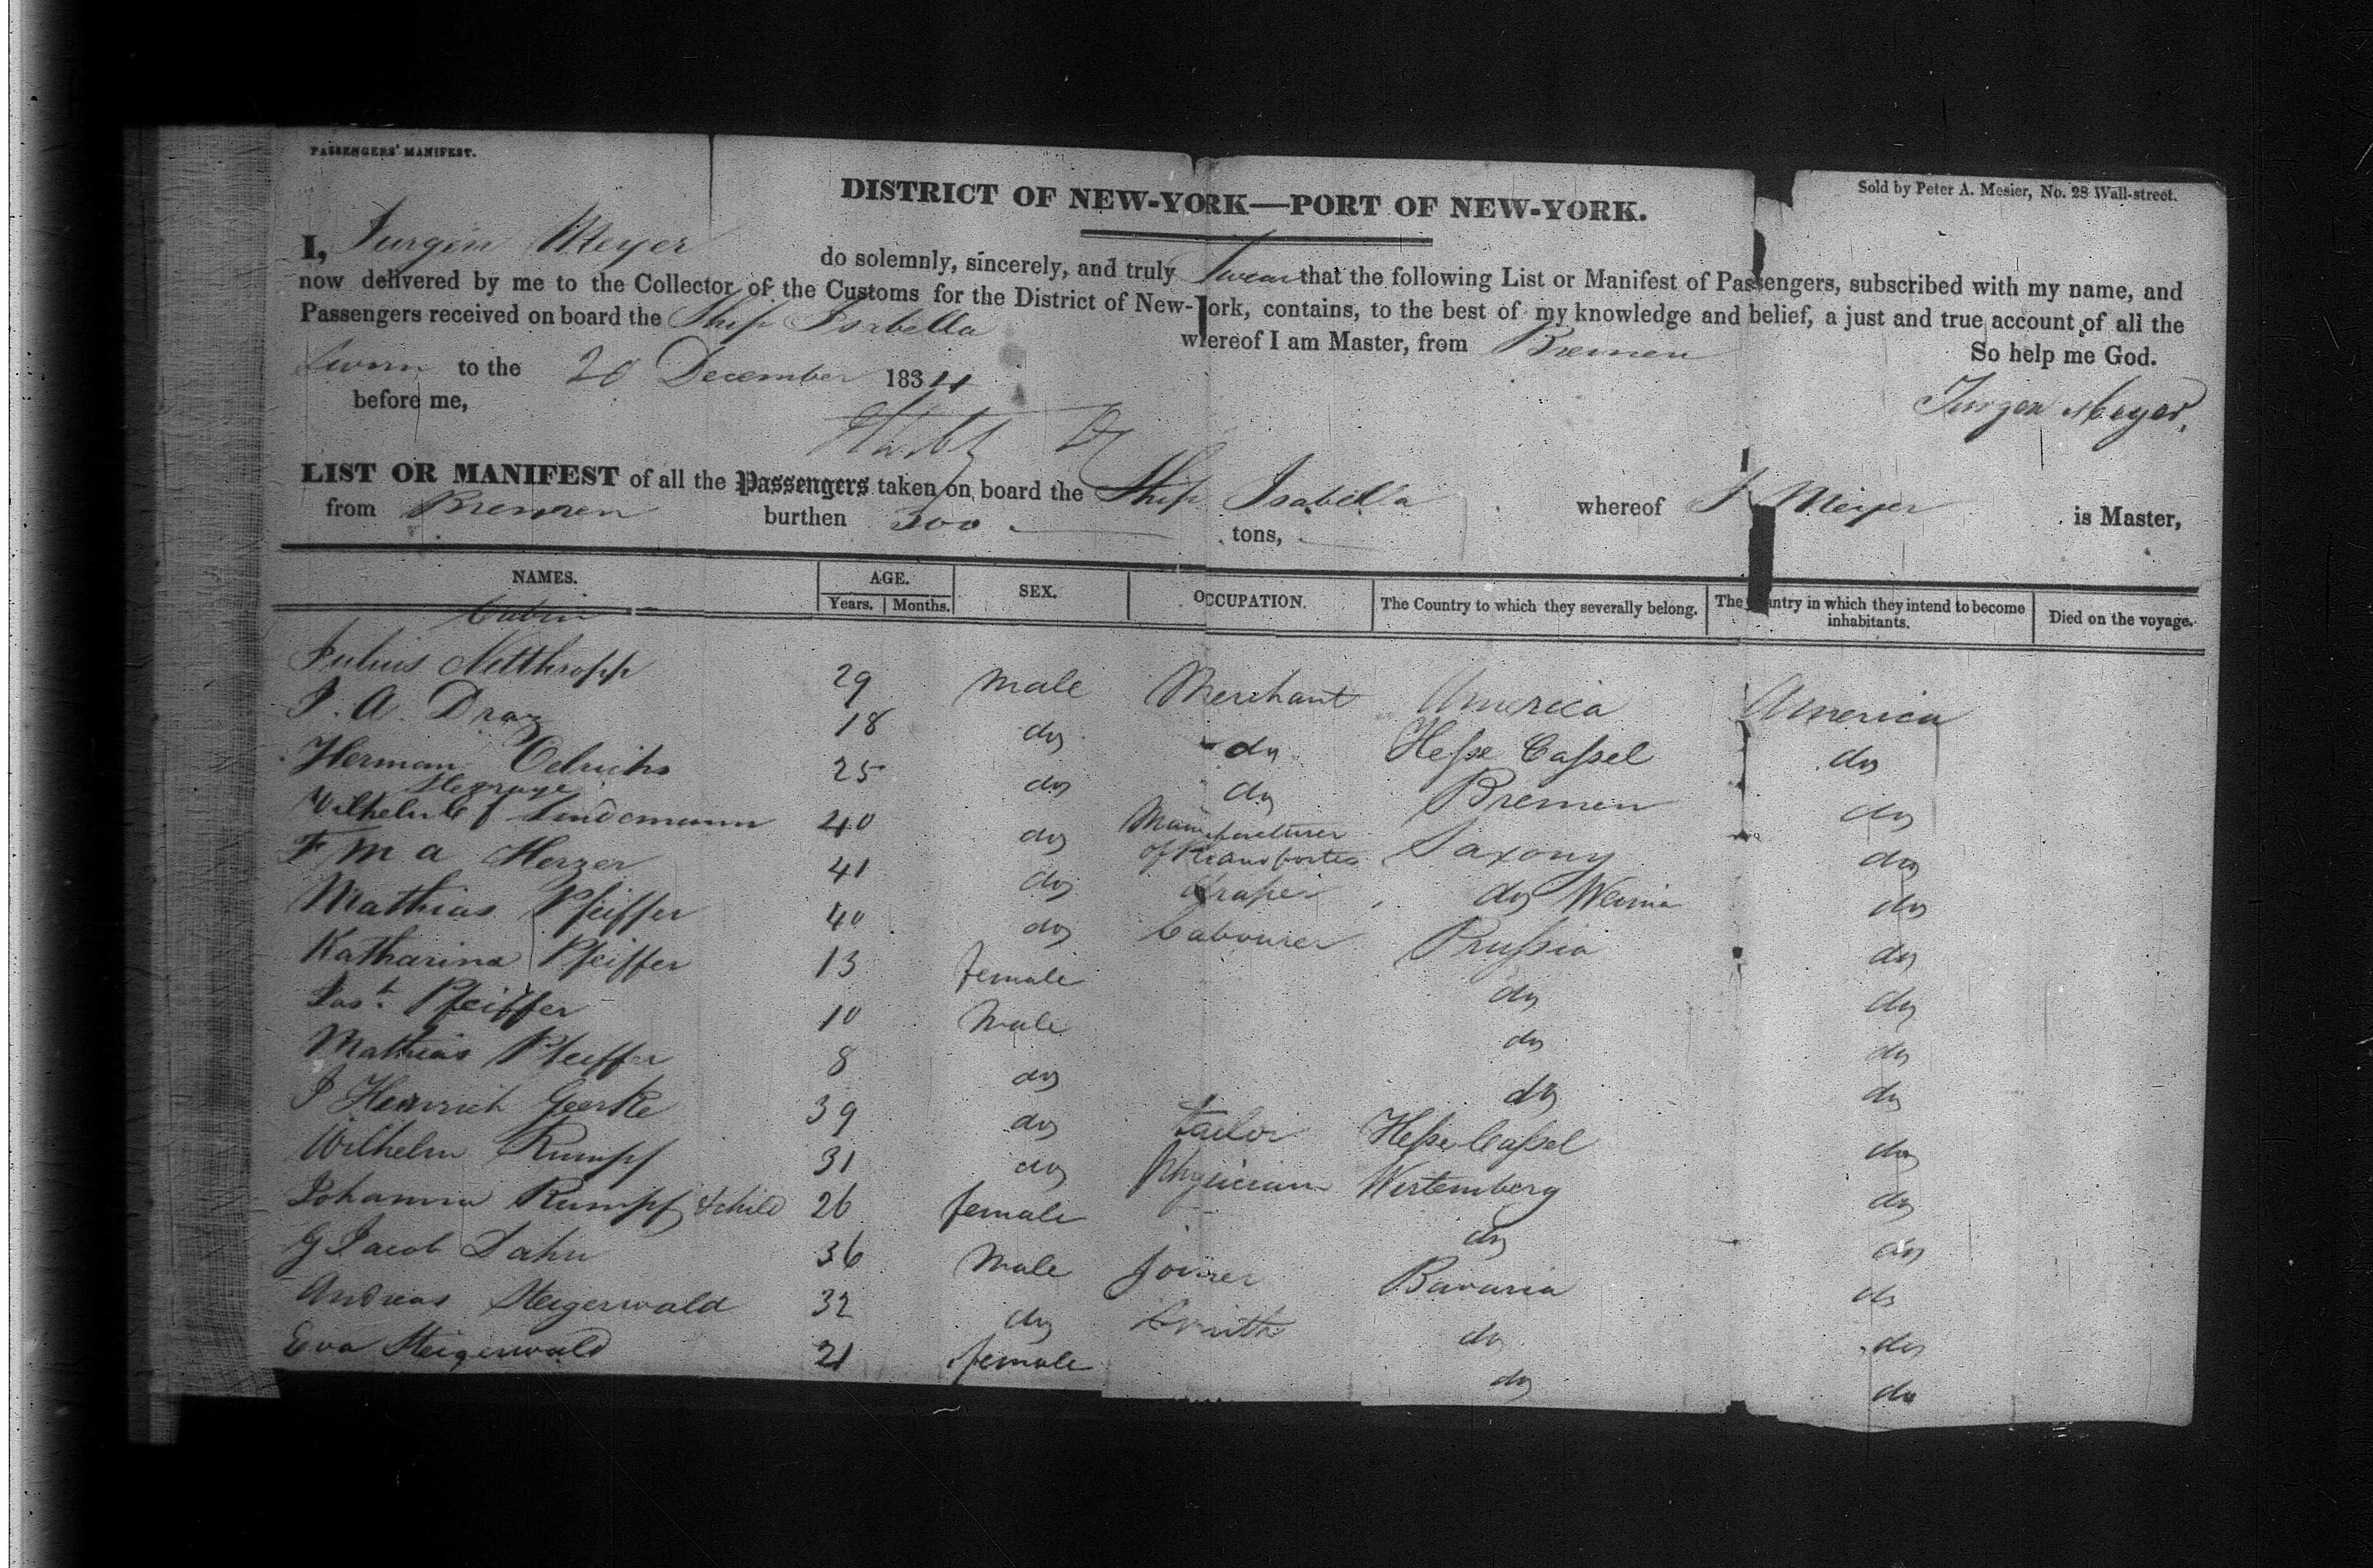 PASSENGERS' MANIFEST.
Sold by Peter A. Mesier, No. 28 Wall-street.
DISTRICT OF NEW-YORK—PORT OF NEW-YORK.
I, Jurgen Meyer do solemnly, sincerely, and truly Swear that the following List or Manifest of Passengers, subscribed with my name, and
now delivered by me to the Collector of the Customs for the District of New-York, contains, to the best of my knowledge and belief, a just and true account of all the
Passengers received on board the Ship Isabella whereof I am Master, from Bremen So help me God.
Sworn to the 20 December 1834
before me, Jurgen Meyer,
LIST OR MANIFEST of all the Passengers taken on board the Ship Isabella whereof J Meyer is Master,
from Bremen burthen 300 tons,
NAMES. AGE. SEX. OCCUPATION. The Country to which they severally belong. The Country in which they intend to become inhabitants. Died on the voyage.
Years. Months.
Cabin
Julius Nelthropp 29 Male Merchant America America
J. A. Draz 18 do do Hesse Cassel do
Herman Oelrichs 25 do do Bremen do
Steerage
Wilhelm f Lindemann 40 do Manufacturer of Pianofortes Saxony do
F M A Herzer 41 do draper do Weima do
Mathias Pfeiffer 40 do Labourer Prussia do
Katharina Pfeiffer 13 female do do
Pfeiffer 10 Male do do
Mathias Pfeiffer 8 do do do
J Heinrich Geerke 39 do tailor Hesse Cassel do
Wilhelm Rumpf 31 do Physician Wirtemberg do
Johanna Rumpf & child 26 female do do
G Jacob Dahn 36 Male joiner Bavaria do
Andreas Steigerwald 32 do Smith do do
Eva Steigerwald 21 female do do